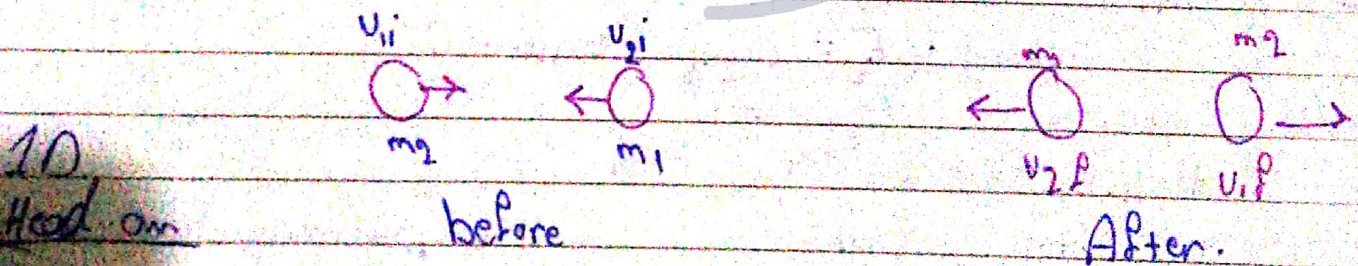 v1i v2i m1 m2
m2 m1 v2f v1f
1D
Head on before After.